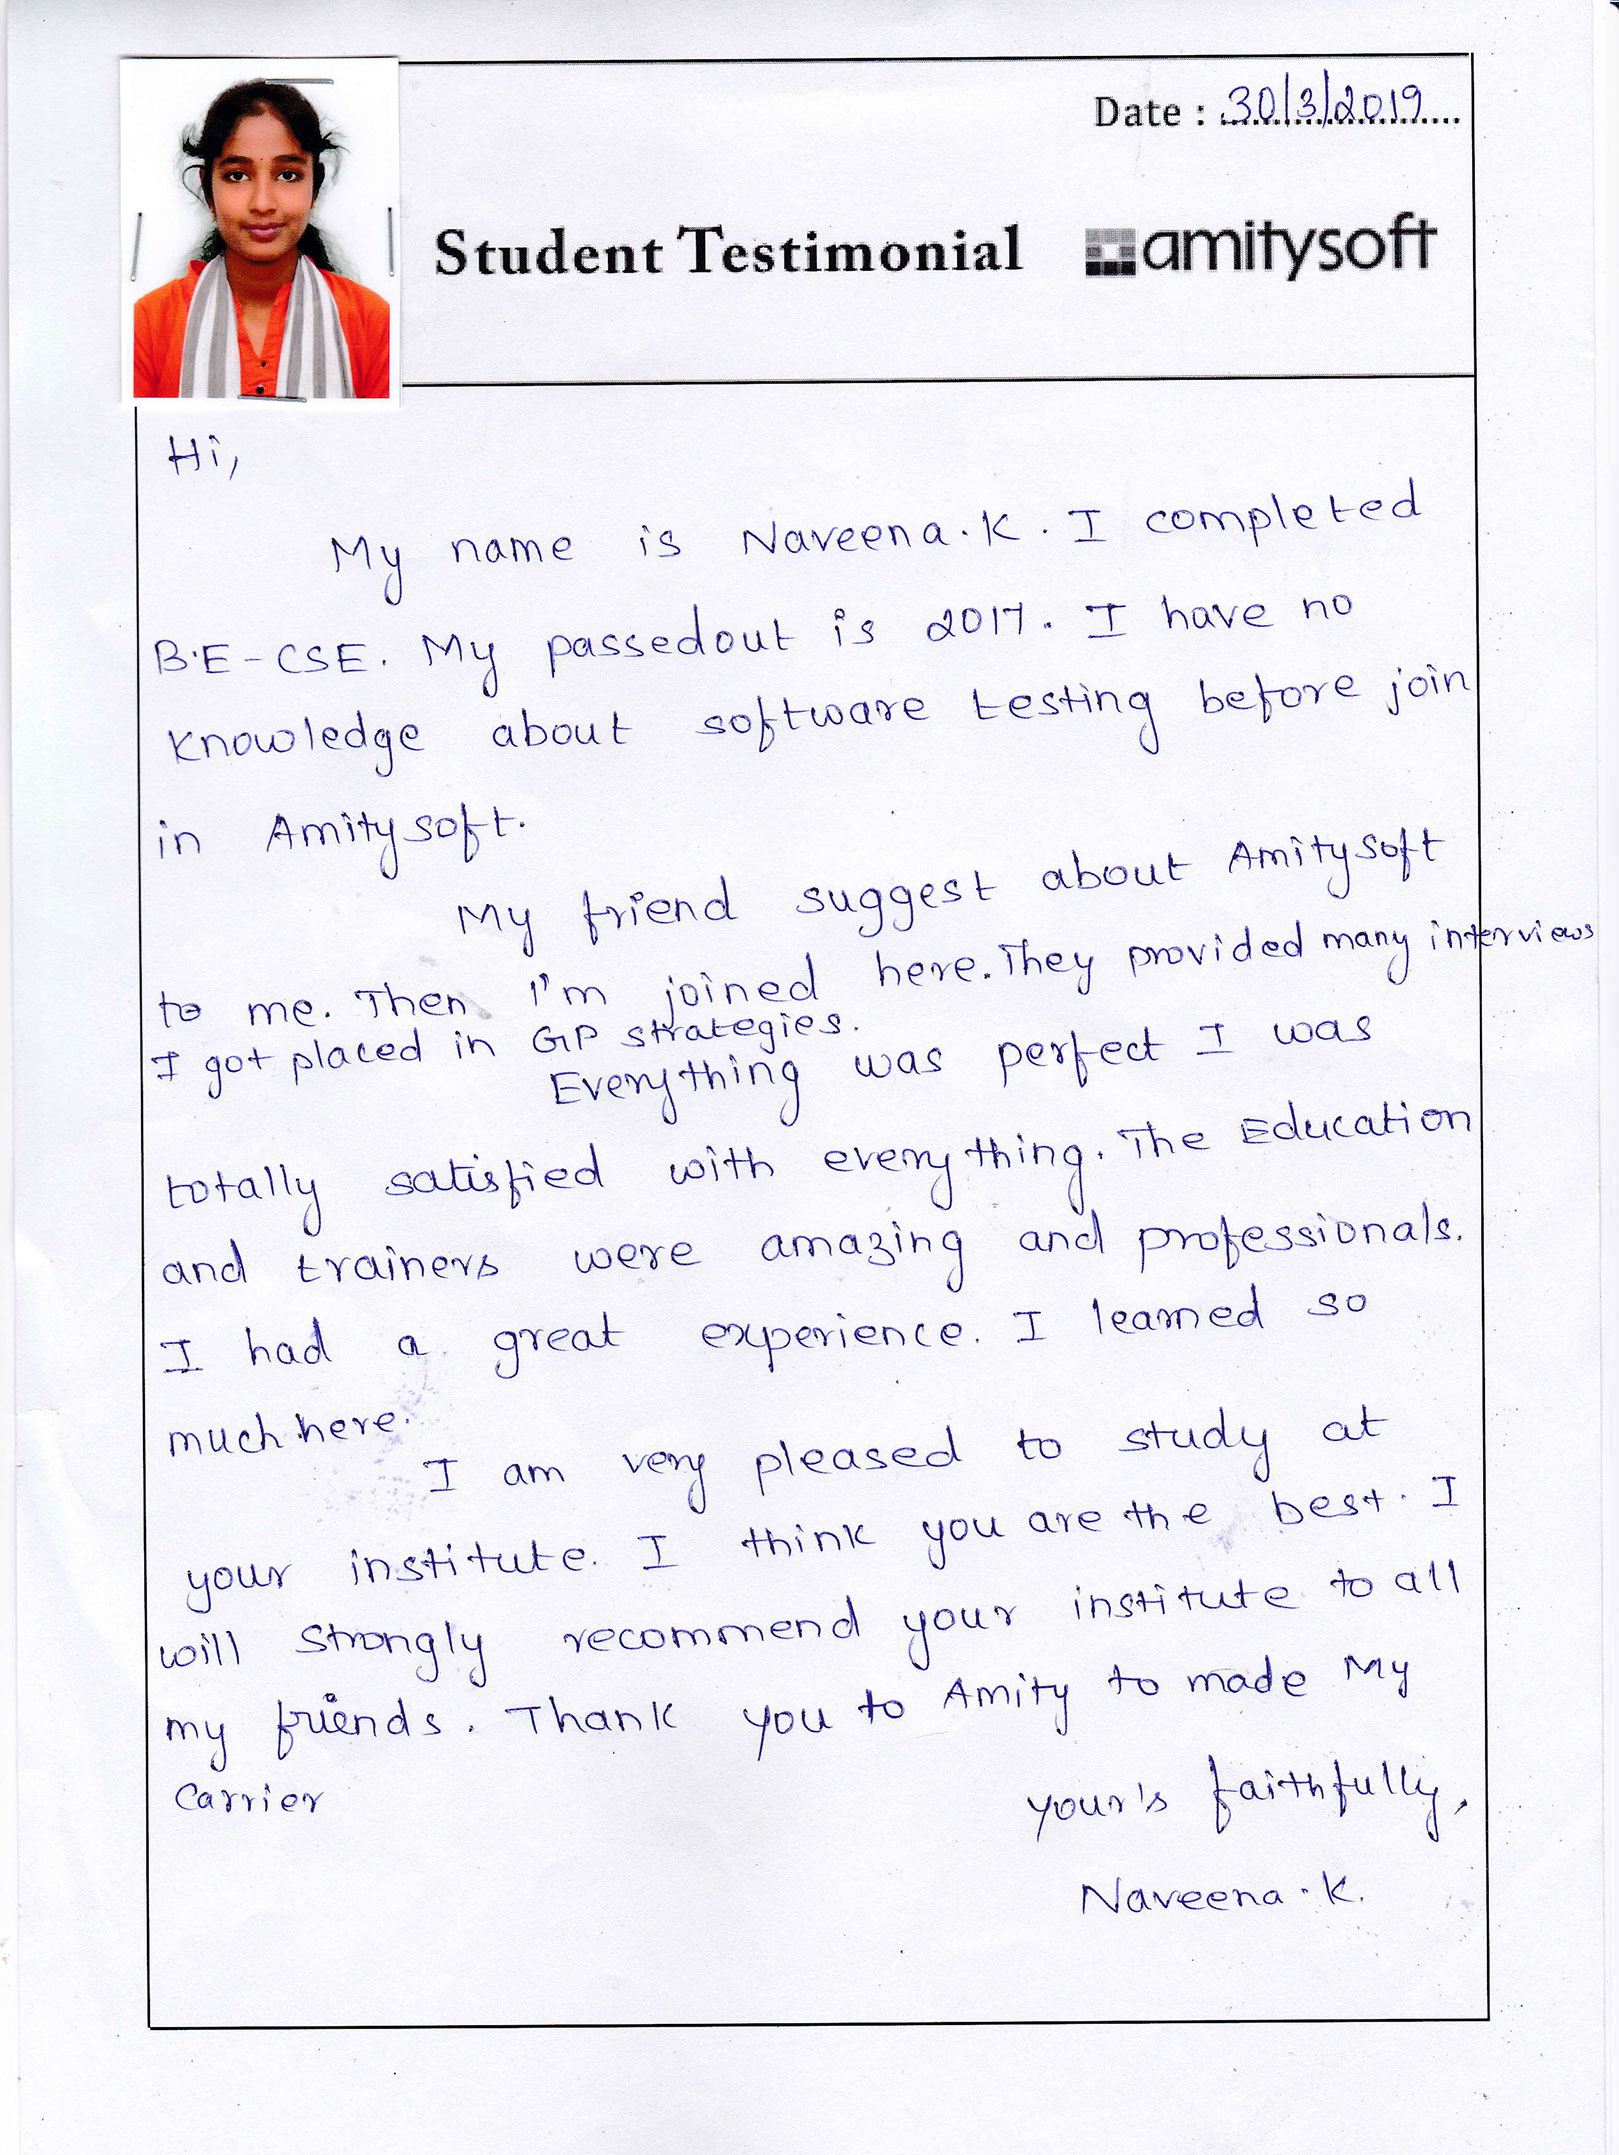 Date : 30/3/2019
Student Testimonial amitysoft
Hi,
My name is Naveena.K. I completed
B.E-CSE. My passedout is 2017. I have no
knowledge about software testing before join
in Amitysoft.
My friend suggest about Amitysoft
to me. Then I'm joined here. They provided many interviews
I got placed in GP strategies.
Everything was perfect I was
totally satisfied with everything. The Education
and trainers were amazing and professionals.
I had a great experience. I learned so
much here.
I am very pleased to study at
your institute. I think you are the best. I
will strongly recommend your institute to all
my friends. Thank you to Amity to made My
Carrier
your's faithfully,
Naveena.K.